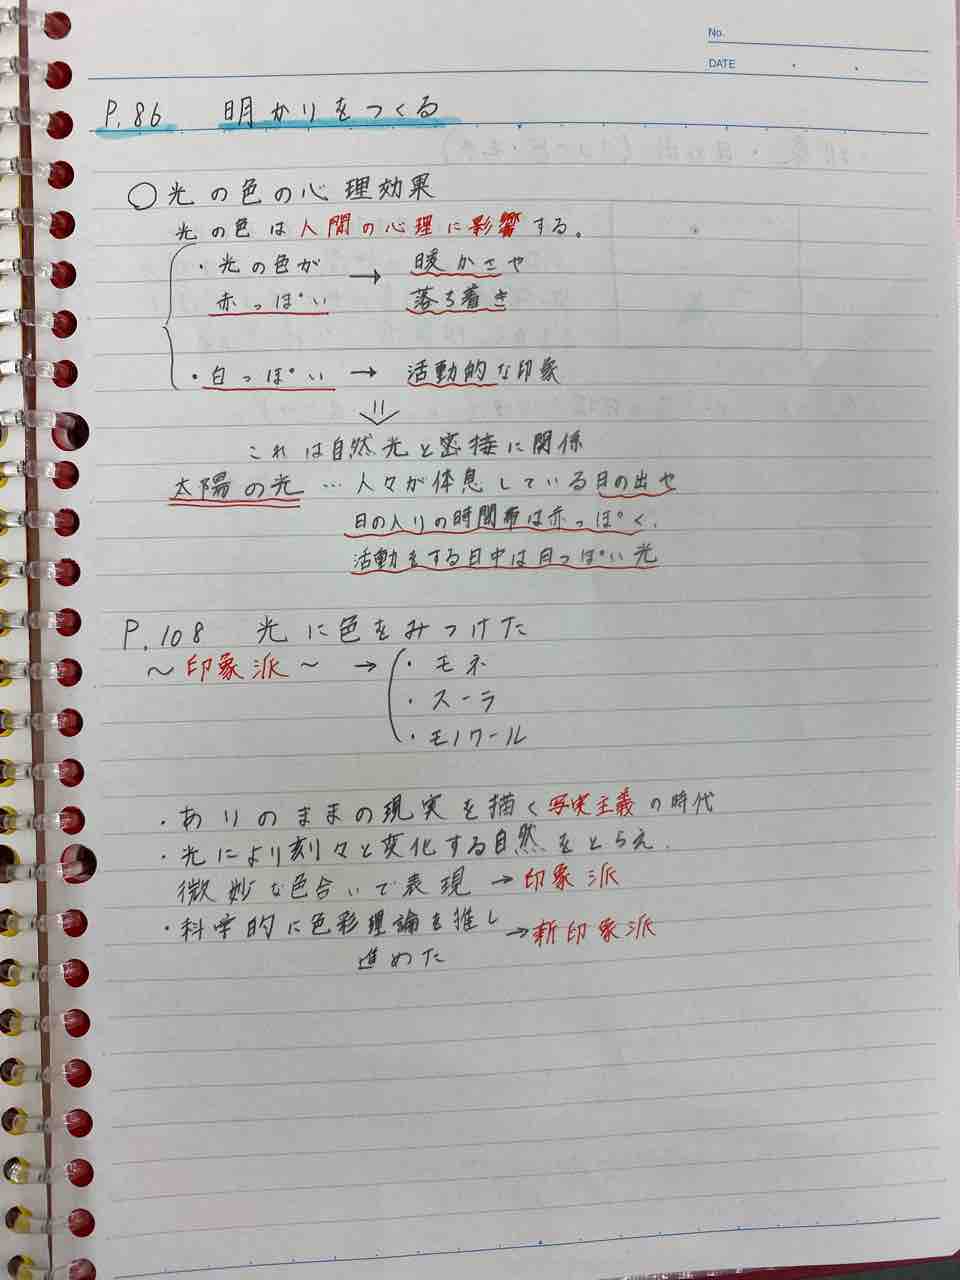 No.
DATE
P.86 明かりをつくる
○光の色の心理効果
光の色は人間の心理に影響する。
・光の色が → 暖かさや
赤っぽい 落ち着き
・白っぽい → 活動的な印象
これは自然光と密接に関係
太陽の光 … 人々が体息している日の出や
日の入りの時間帯は赤っぽく、
活動をする日中は白っぽい光
P.108 光に色をみつけた
～印象派～ → ・モネ
・スーラ
・モノワール
・ありのままの現実を描く写実主義の時代
・光により刻々と変化する自然をとらえ、
微妙な色合いで表現 → 印象派
・科学的に色彩理論を推し → 新印象派
進めた